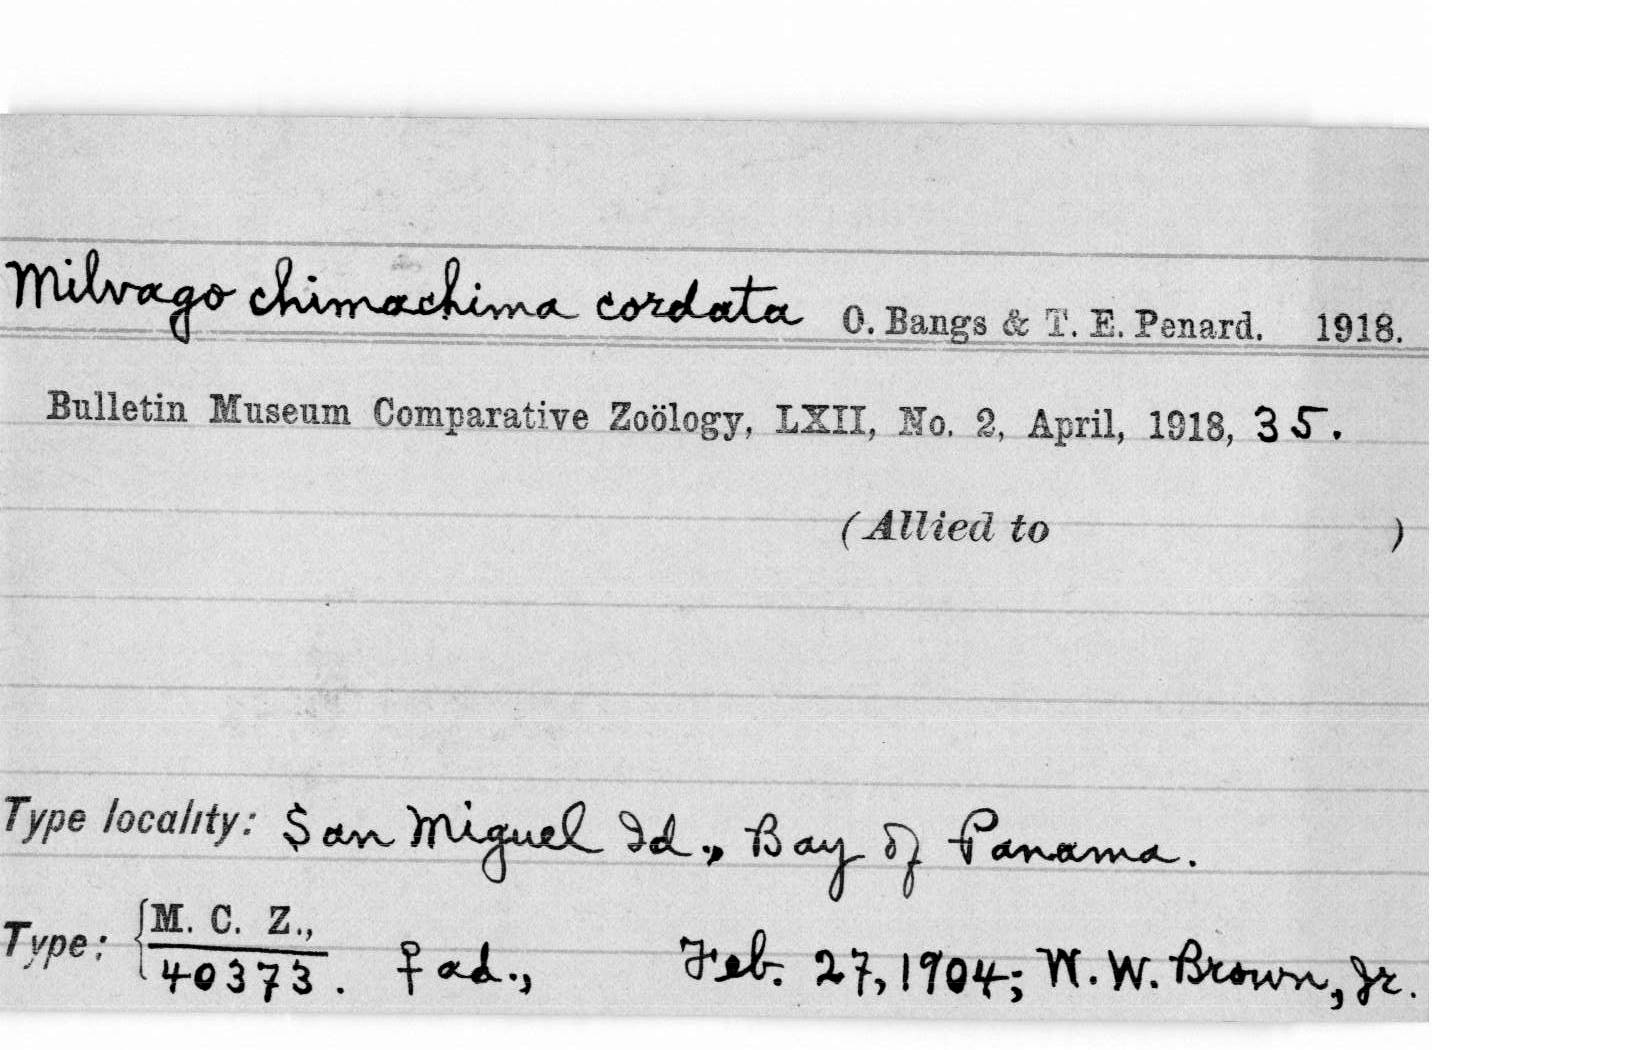 Milvago chimachima cordata O. Bangs & T. E. Penard. 1918.
Bulletin Museum Comparative Zoölogy, LXII, No. 2, April, 1918, 35.
(Allied to )
Type locality: San Miguel Id., Bay of Panama.
Type: { M. C. Z.,
40373. ♀ ad., Feb. 27, 1904; W. W. Brown, Jr.